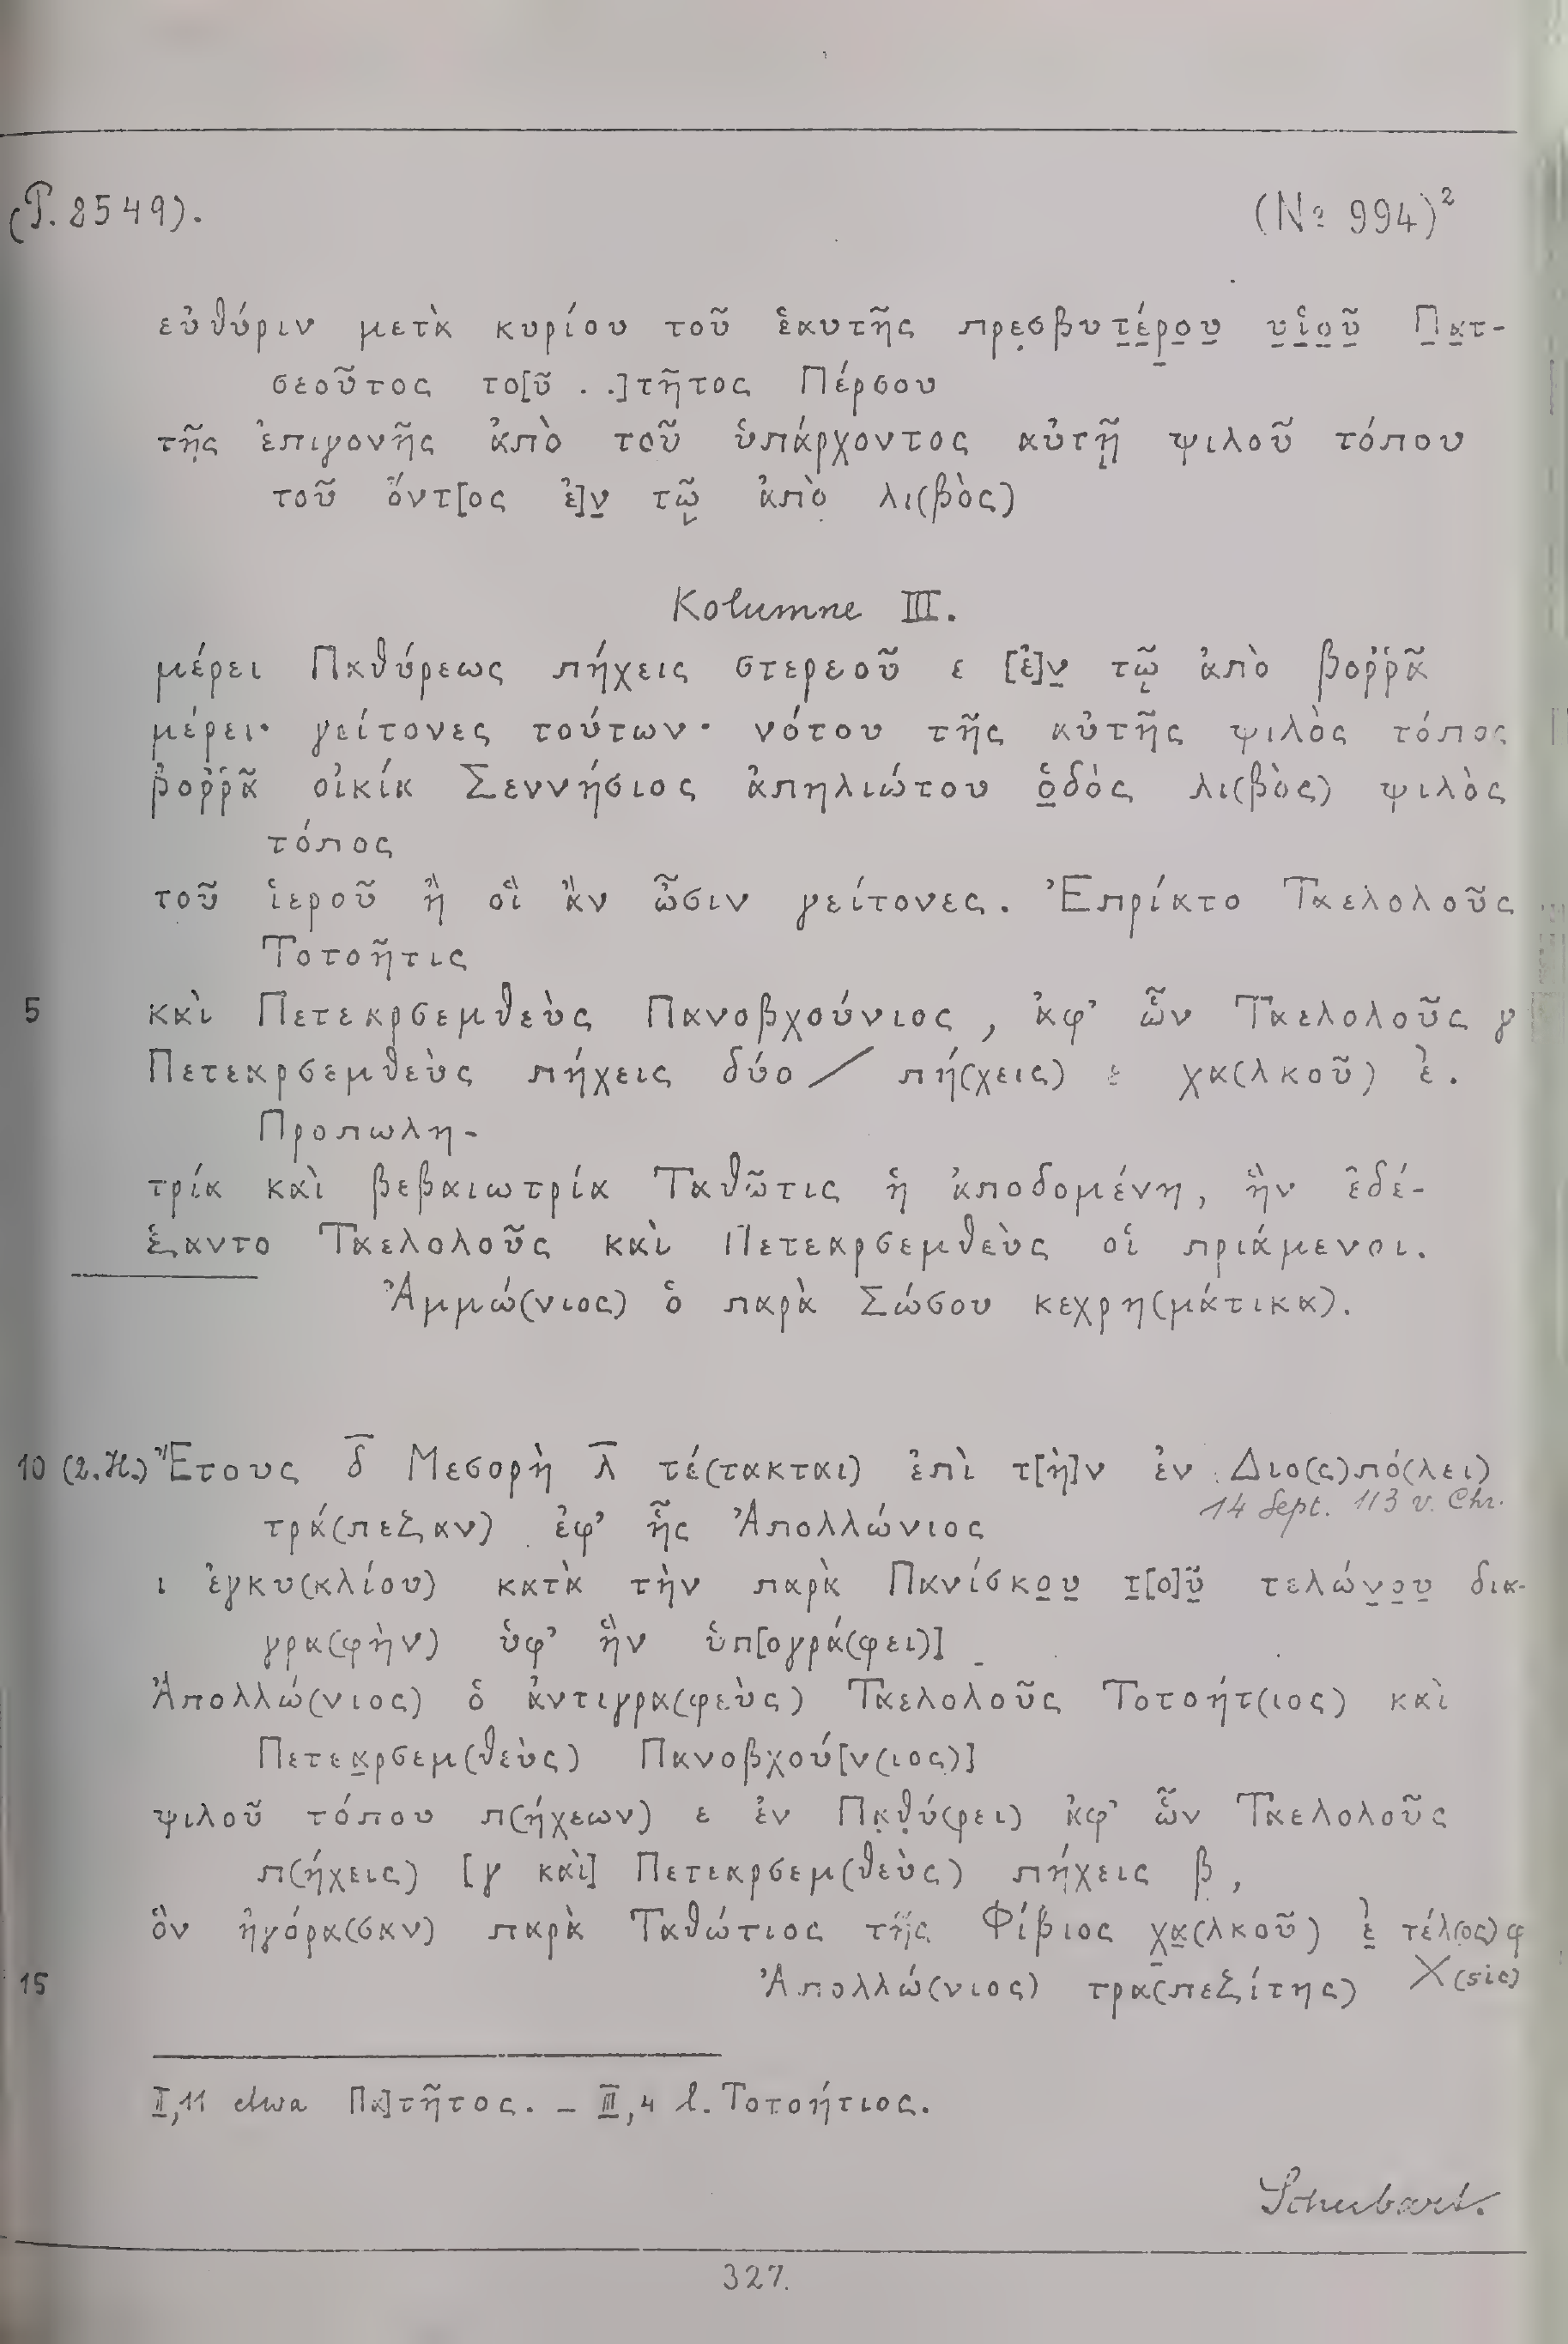 (P. 2549). (No 994)²
εὐθύριν μετὰ κυρίου τοῦ ἑαυτῆς πρεσβυτέρου υἱοῦ Πατ-
σεοῦτος το[ῦ . .]τῆτος Πέρσου
τῆς ἐπιγονῆς ἀπὸ τοῦ ὑπάρχοντος αὐτῇ ψιλοῦ τόπου
τοῦ ὄντ[ος ἐ]ν τῷ ἀπὸ λι(βὸς)
Kolumne III.
μέρει Παθύρεως πήχεις στερεοῦ ε [ἐ]ν τῷ ἀπὸ βορρᾶ
μέρει· γείτονες τούτων· νότου τῆς αὐτῆς ψιλὸς τόπος
βορρᾶ οἰκία Σεννήσιος ἀπηλιώτου ὁδὸς λι(βὸς) ψιλὸς
τόπος
τοῦ ἱεροῦ ἢ οἳ ἂν ὦσιν γείτονες. Ἐπρίατο Ταελολοῦς
Τοτοῆτις
5 καὶ Πετεαρσεμθεὺς Πανοβχούνιος, ἀφ' ὧν Ταελολοῦς γ
Πετεαρσεμθεὺς πήχεις δύο / πή(χεις) ε χα(λκοῦ) ἐ.
Προπωλη-
τρία καὶ βεβαιωτρία Ταθῶτις ἡ ἀποδομένη, ἣν ἐδέ-
ξαντο Ταελολοῦς καὶ Πετεαρσεμθεὺς οἱ πριάμενοι.
Ἀμμώ(νιος) ὁ παρὰ Σώσου κεχρη(μάτικα).
10 (2. H.) Ἔτους δ̅ Μεσορὴ λ̅ τέ(τακται) ἐπὶ τ[ὴ]ν ἐν Διο(ς)πό(λει)
14 Sept. 113 v. Chr.
τρά(πεζαν) ἐφ' ἧς Ἀπολλώνιος
ι ἐγκυ(κλίου) κατὰ τὴν παρὰ Πανίσκου τ[ο]ῦ τελώνου δια-
γρα(φὴν) ὑφ' ἣν ὑπ[ογρά(φει)]
Ἀπολλώ(νιος) ὁ ἀντιγρα(φεὺς) Ταελολοῦς Τοτοήτ(ιος) καὶ
Πετεαρσεμ(θεὺς) Πανοβχού[ν(ιος)]
ψιλοῦ τόπου π(ήχεων) ε ἐν Παθύ(ρει) ἀφ' ὧν Ταελολοῦς
π(ήχεις) [γ καὶ] Πετεαρσεμ(θεὺς) πήχεις β,
ὃν ἠγόρα(σαν) παρὰ Ταθώτιος τῆς Φίβιος χα(λκοῦ) ἐ τέλ(ος) φ
15 Ἀπολλώ(νιος) τρα(πεζίτης) Χ (sic)
I,11 etwa Πα]τῆτος. – III,4 l. Τοτοήτιος.
Schubart.
327.